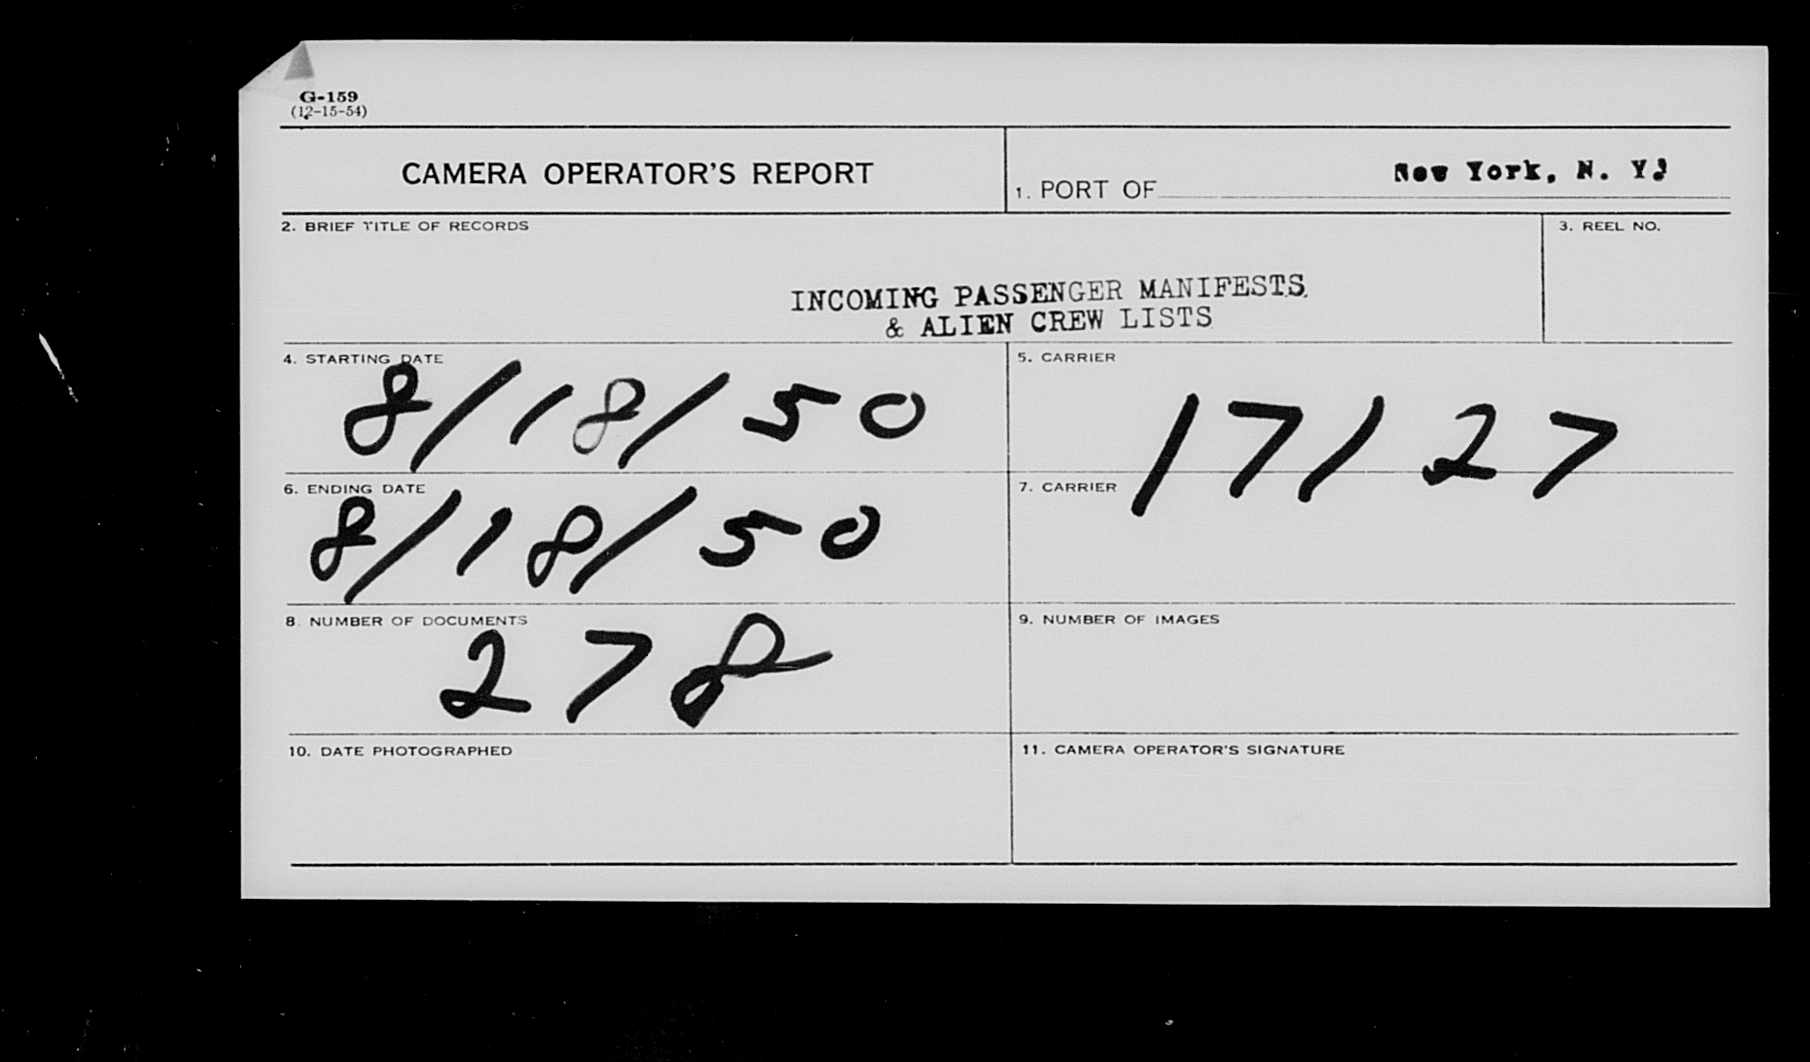 G-159
(12-15-54)
CAMERA OPERATOR'S REPORT
1. PORT OF New York, N. Y.
2. BRIEF TITLE OF RECORDS
3. REEL NO.
INCOMING PASSENGER MANIFESTS
& ALIEN CREW LISTS
4. STARTING DATE
8/18/50
5. CARRIER
17127
6. ENDING DATE
8/18/50
7. CARRIER
8. NUMBER OF DOCUMENTS
278
9. NUMBER OF IMAGES
10. DATE PHOTOGRAPHED
11. CAMERA OPERATOR'S SIGNATURE